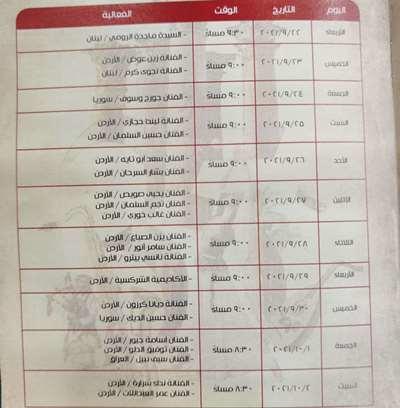 اليوم التاريخ الوقت الفعالية
الأربعاء ٢٠٢١/٩/٢٢ ٩:٣٠ مساءً - السيدة ماجدة الرومي / لبنان
الخميس ٢٠٢١/٩/٢٣ ٩:٠٠ مساءً - الفنانة زين عوض / الأردن
- الفنانة نجوى كرم / لبنان
الجمعة ٢٠٢١/٩/٢٤ ٩:٠٠ مساءً - الفنان جورج وسوف / سوريا
السبت ٢٠٢١/٩/٢٥ ٩:٠٠ مساءً - الفنانة ليندا حجازي / الأردن
- الفنان حسين السلمان / الأردن
الأحد ٢٠٢١/٩/٢٦ ٩:٠٠ مساءً - الفنان سعد أبو تايه / الأردن
- الفنان بشار السرحان / الأردن
الإثنين ٢٠٢١/٩/٢٧ ٩:٠٠ مساءً - الفنان يحيى صويص / الأردن
- الفنان نجم السلمان / الأردن
- الفنان غالب خوري / الأردن
الثلاثاء ٢٠٢١/٩/٢٨ ٩:٠٠ مساءً - الفنان يزن الصباغ / الأردن
- الفنان سامر أنور / الأردن
- الفنانة نانسي بيترو / الأردن
الأربعاء ٢٠٢١/٩/٢٩ ٩:٠٠ مساءً - الأكاديمية الشركسية / الأردن
الخميس ٢٠٢١/٩/٣٠ ٩:٠٠ مساءً - الفنانة ديانا كرزون / الأردن
- الفنان حسين الديك / سوريا
الجمعة ٢٠٢١/١٠/١ ٨:٣٠ مساءً - الفنان أسامة جبور / الأردن
- الفنان توفيق الدلو / الأردن
- الفنان سيف نبيل / العراق
السبت ٢٠٢١/١٠/٢ ٨:٣٠ مساءً - الفنانة نداء شرارة / الأردن
- الفنان عمر العبداللات / الأردن